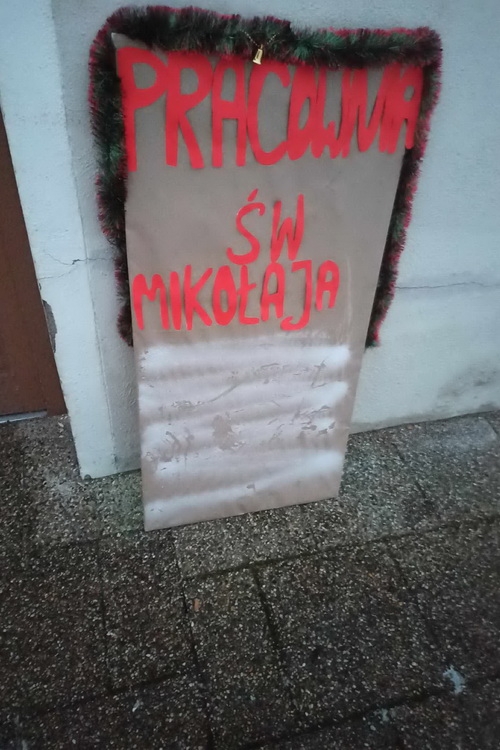 PRACOWNIA
ŚW
MIKOŁAJA